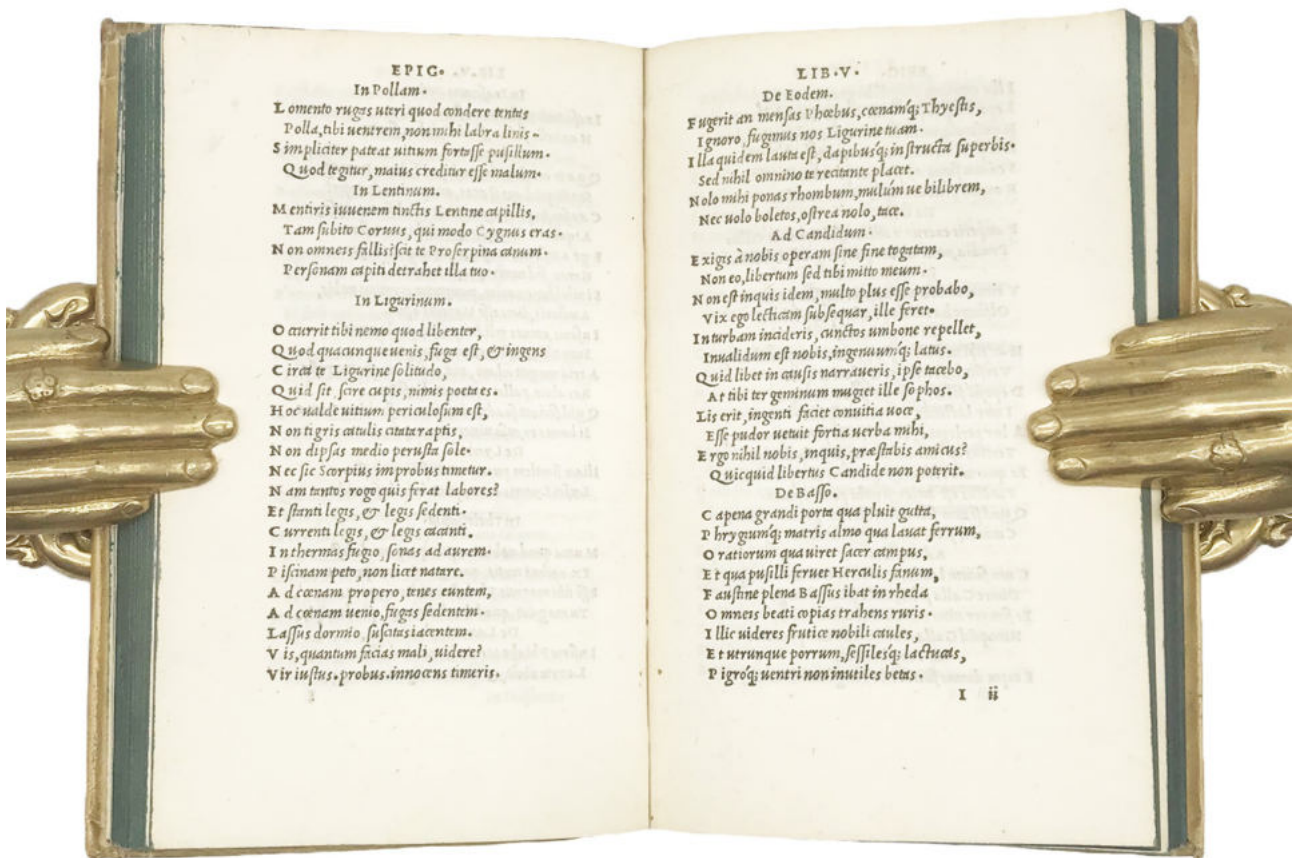 EPIG.
In Pollam.
Lomento rugas uteri quod condere tentas
Polla, tibi uentrem, non mihi labra linis.
Simpliciter pateat uitium fortasse pusillum.
Quod tegitur, maius creditur esse malum.
In Lentinum.
Mentiris iuuenem tinctis Lentine capillis,
Tam subito Coruus, qui modo Cygnus eras.
Non omneis fallis, scit te Proserpina canum.
Personam capiti detrahet illa tuo.
In Ligurinum.
Occurrit tibi nemo quod libenter,
Quod quacunque uenis, fuga est, & ingens
Circa te Ligurine solitudo,
Quid sit, scire cupis, nimis poeta es.
Hoc ualde uitium periculosum est,
Non tigris catulis citata raptis,
Non dipsas medio perusta sole.
Nec sic Scorpius improbus timetur.
Nam tantos rogo quis ferat labores?
Et stanti legis, & legis sedenti.
Currenti legis, & legis cacanti.
In thermas fugio, sonas ad aurem.
Piscinam peto, non licet natare.
Ad cœnam propero, tenes euntem,
Ad cœnam uenio, fugas sedentem.
Lassus dormio, suscitas iacentem.
Vis, quantum facias mali, uidere?
Vir iustus. probus. innocens timeris.
LIB.V.
De Eodem.
Fugerit an mensas Phœbus, cœnamq; Thyestis,
Ignoro, fugimus nos Ligurine tuam.
Illa quidem lauta est, dapibusq; instructa superbis.
Sed nihil omnino te recitante placet.
Nolo mihi ponas rhombum, mulúm ue bilibrem,
Nec uolo boletos, ostrea nolo, tace.
Ad Candidum.
Exigis à nobis operam sine fine togatam,
Non eo, libertum sed tibi mitto meum.
Non est inquis idem, multo plus esse probabo,
Vix ego lecticam subsequar, ille feret.
In turbam incideris, cunctos umbone repellet,
Inualidum est nobis, ingenuumq; latus.
Quid libet in causis narraueris, ipse tacebo,
At tibi ter geminum mugiet ille sophos.
Lis erit, ingenti faciet conuitia uoce,
Esse pudor uetuit fortia uerba mihi,
Ergo nihil nobis, inquis, præstabis amicus?
Quicquid libertus Candide non poterit.
De Basso.
Capena grandi porta qua pluit gutta,
Phrygiumq; matris almo qua lauat ferrum,
Oratiorum qua uiret sacer campus,
Et qua pusilli feruet Herculis fanum,
Faustine plena Bassus ibat in rheda
Omneis beati copias trahens ruris.
Illic uideres frutice nobili caules,
Et utrunque porrum, sessilesq; lactucas,
Pigroq; uentri non inutiles betas.
I ii